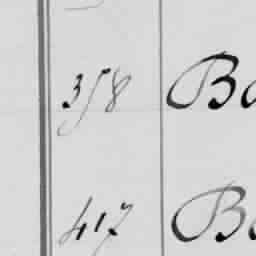 358 Ba
417 Ba